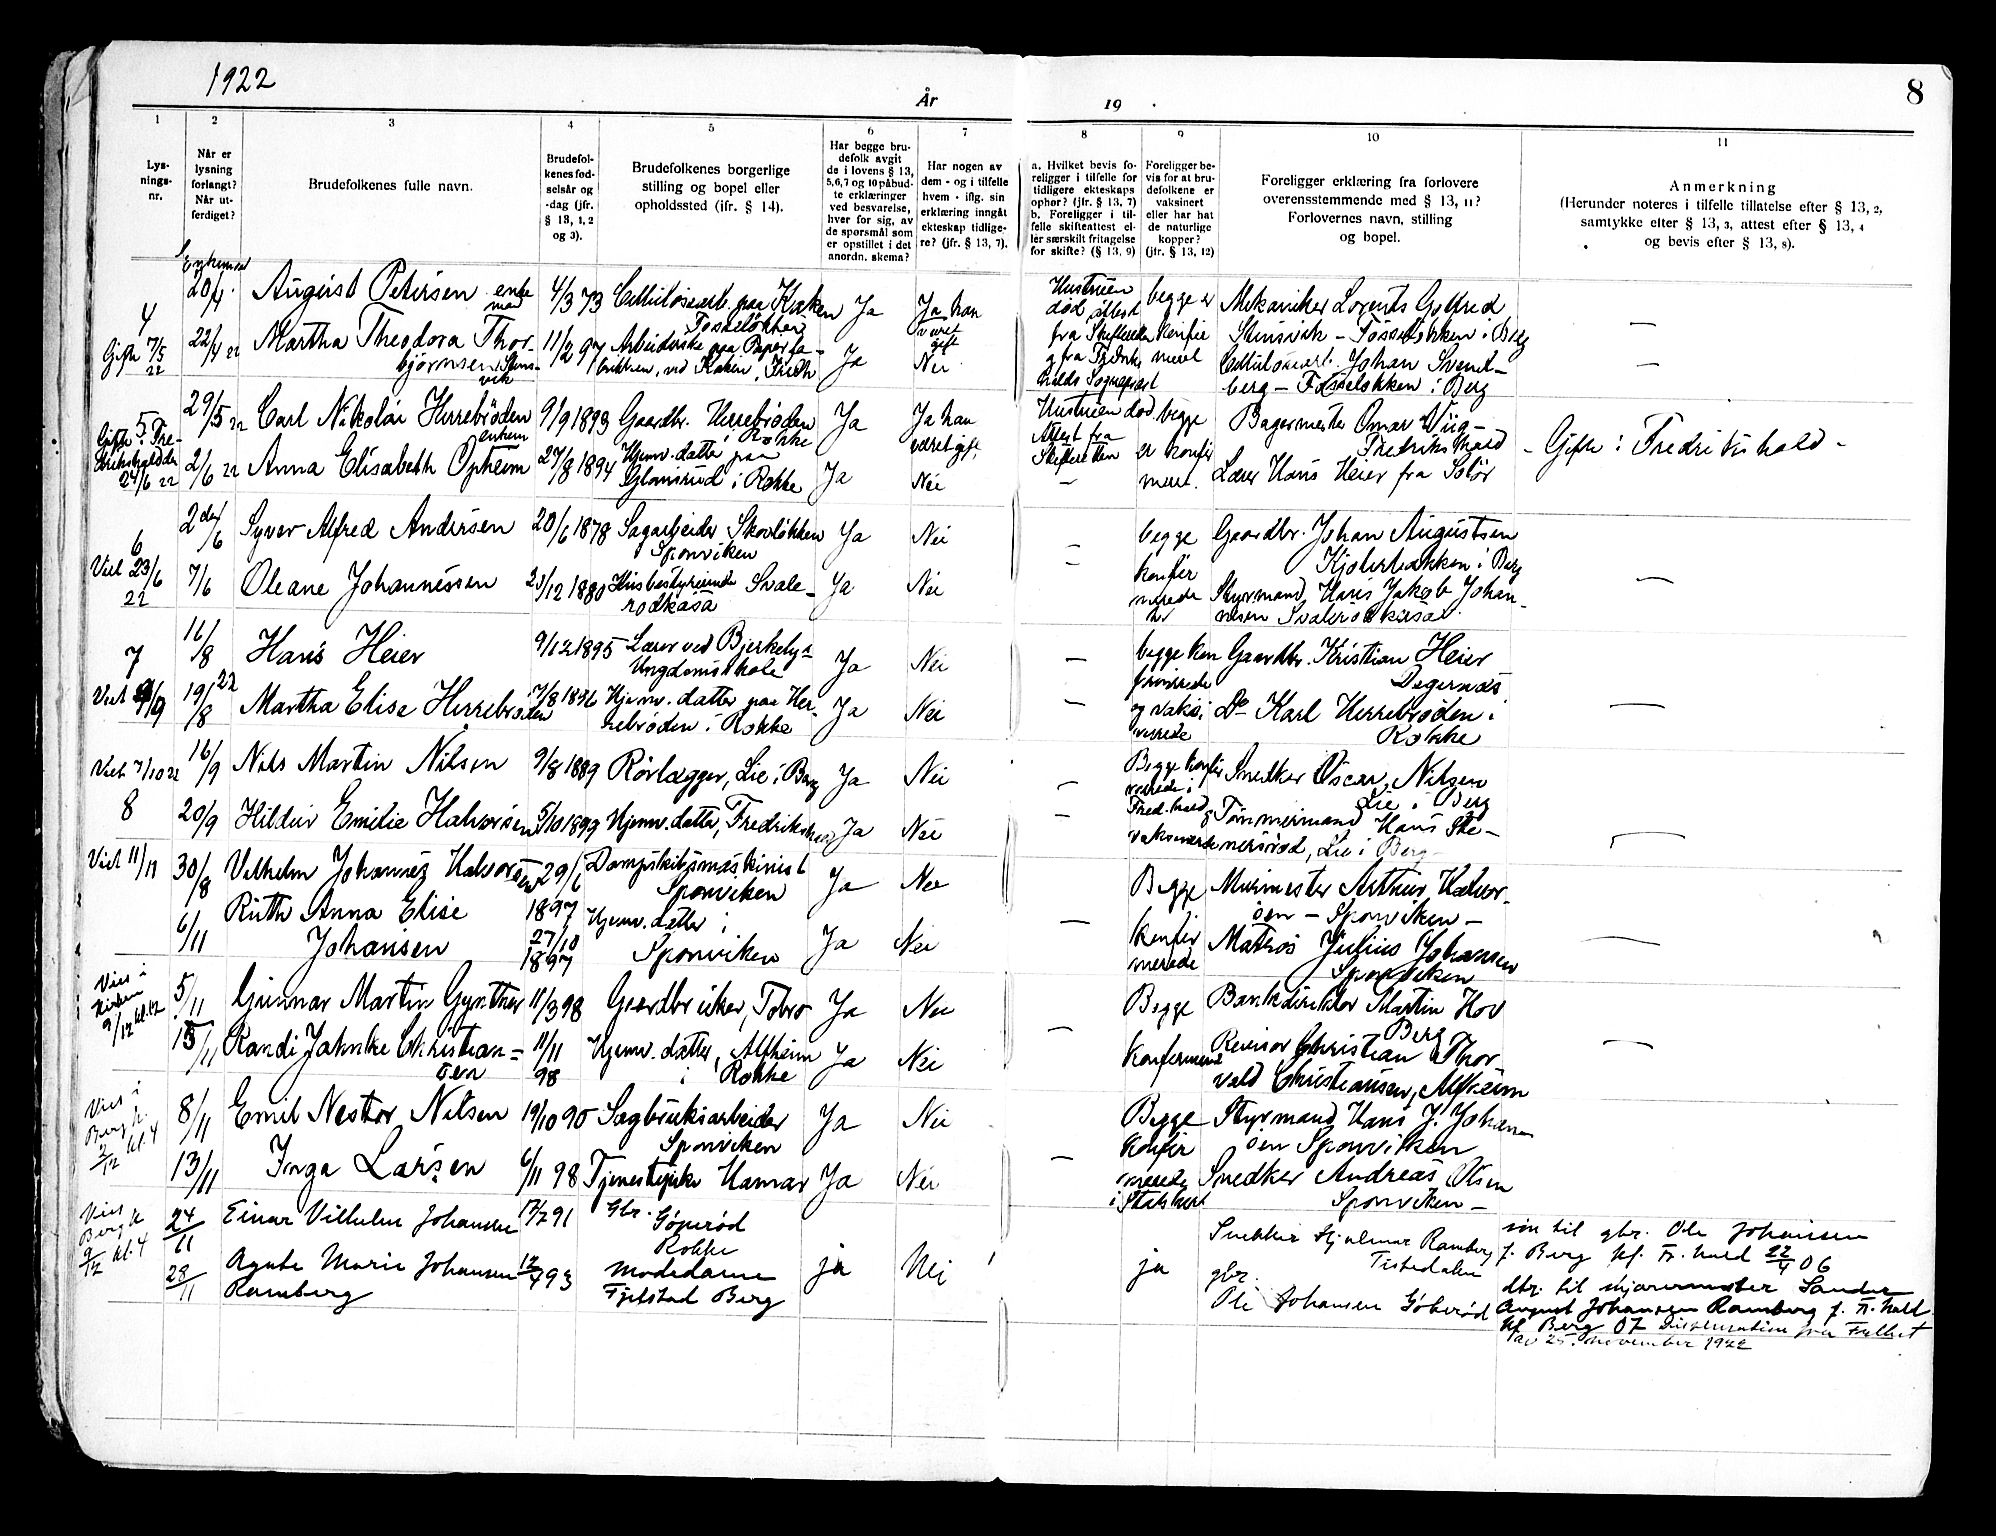 1922
År
19
8
1
2
3
4
5
6
7
8
9
10
11
Lys-
nings-
nr.
Når er
lysning
forlangt?
Når ut-
ferdiget?
Brudefolkenes fulle navn.
Brudefol-
kenes fød-
selsår og
-dag (jfr.
§ 13, 1, 2
og 3).
Brudefolkenes borgerlige
stilling og bopel eller
opholdssted (ifr. § 14).
Har begge bru-
defolk avgit
de i lovens § 13,
5,6,7 og 10 påbud-
te erklæringer
ved besvarelse,
hver for sig, av
de spørsmål som
er opstillet i det
anordn. skema?
Har nogen av
dem - og i tilfelle
hvem - iflg. sin
erklæring inngått
ekteskap tidlige-
re? (jfr. § 13, 7).
a. Hvilket bevis fo-
religger i tilfelle for
tidligere ekteskaps
ophør? (jfr. § 13, 7)
b. Foreligger i til-
felle skifteattest el-
ler særskilt fritagelse
for skifte? (§ 13, 9)
Foreligger be-
vis for at bru-
defolkene er
vaksinert
eller har hat
de naturlige
kopper?
(jfr. § 13, 12)
Foreligger erklæring fra forlovere
overensstemmende med § 13, 11?
Forlovernes navn, stilling
og bopel.
Anmerkning
(Herunder noteres i tilfelle tillatelse efter § 13, 2,
samtykke efter § 13, 3, attest efter § 13, 4
og bevis efter § 13, 8).
4
Gift 7/5 22
20/4
22/4 22
August Petersen enke
mand
Martha Theodora Thor-
bjørnsen Stens-
vik
4/3 73
11/2 97
Celluloseearb. paa Kaken
Fosseløkken
Arbeiderske paa Papirfa-
brikken, ved Kaken, Fredh
Ja
Ja
Ja han
været
gift
Nei
Hustruen
død attest
fra Skifteretten
og fra Fredriks
halds Sogneprest
begge er
konfir
meret
Mekaniker Lorents Gotfred
Stensvik - Fosseløkken i Berg
Cellulosearb. Johan Svend-
berg - Fosseløkken i Berg
5
Gift i Fre-
drikshald de
24/6 22
29/5 22
2/6 22
Carl Nikolai Herrebrøden
enkem
Anna Elisabeth Opheim
9/9 1893
27/8 1894
Gaardbr. Herrebrøden
Rokke
Hjemv. datter paa
Glomsrud i Rokke
Ja
Ja
Ja han
været gift
Nei
Hustruen død
Attest fra
Skifteretten
begge
er konfir
meret.
Bagermester Omar Wiig -
Fredrikshald
Lærer Hans Heier fra Solør
- Gift i Fredrikshald -
6
Viet 23/6
22
2den/6
7/6
Syver Alfred Andersen
Oleane Johannessen
20/6 1878
23/12 1880
Sagarbeider Skovløkken
Sponviken
Husbestyrerinde Svale-
rødkasa
Ja
Ja
Nei
Nei
begge
konfir
merede
Gaardbr. Johan Augustsen
Kjølerbakken i Berg
Styrmand Hans Jakob Johan-
nesen Svalerødkasa.
7
Viet 9/9
16/8
19/8 22
Hans Heier
Martha Elise Herrebrøden
9/12 1895
7/8 1896
Lærer ved Bjerkely
Ungdomsskole
Hjemv. datter paa Her-
rebrøden i Rokke
Ja
Ja
Nei
Nei
begge kon
firmerede
og vaksi
nerede
Gaardbr. Kristian Heier
Degernæs
Do Karl Herrebrøden i
Rokke
Viet 7/10 22
8
16/9
20/9
Nils Martin Nilsen
Hildur Emilie Halvorsen
9/8 1889
5/10 1899
Rørlægger, Lie i Berg
Hjemv. datter, Fredrikshald
Ja
Ja
Nei
Nei
Begge konfir
merede i
Fred.hald
Snedker Oscar Nilsen
Lie i Berg
Tømmermand Hans Ste-
nersrød, Lie i Berg
Viet 11/11
30/8
6/11
Vilhelm Johannes Halvorsen
Ruth Anna Elise
Johansen
29/6
1897
27/10
1897
Dampskibsmaskinist
Sponviken
Hjemv. datter i
Sponviken
Ja
Ja
Nei
Nei
Begge
konfir
merede
Murmester Arthur Halvor-
sen - Sponviken -
Matros Julius Johansen
Sponviken
Vies i
kirken
9/12 kl. 12
5/11
15/11
Gunnar Martin Gynther
Randi Jahnke Christian-
sen
11/3 98
11/11
98
Gaardbruker, Torø
Hjemv. datter, Alfheim
i Rokke
Ja
Ja
Nei
Nei
Begge
konfirmeret
Bankdirektør Martin Hov
Berg
Revisor Christian Thor-
vald Christiansen, Alfheim
Vies i
Berg k.
2/12 kl. 4
8/11
13/11
Emil Nestor Nilsen
Inga Larsen
19/10 90
6/11 98
Sagbruksarbeider
Sponviken
Tjenestepike Hamar
Ja
Ja
Nei
Nei
Begge
konfir
merede
Styrmand Hans J. Johan-
sen Sponviken
Snedker Andreas Olsen
Sponviken -
Vies
Berg k
9/12 kl. 4
24/11
28/11
Einar Vilhelm Johansen
Agnbe Marie Johansen
Ramberg
17/7 91
12/4 93
Gbr.
Göperød
Rokke
Modedame
Fjelstad Berg
ja
Nei
ja
Snekker Hjalmar Ramberg
Tistedalen
gbr.
Ole Johansen Göberød
søn til gbr. Ole Johansen
f. Berg kf. Fr.hald 22/4 06
dtr. til skjæremester Sander
August Johansen Ramberg f. Fr.hald
kf Berg 07 Dispensation fra Fylket
av 25. november 1922